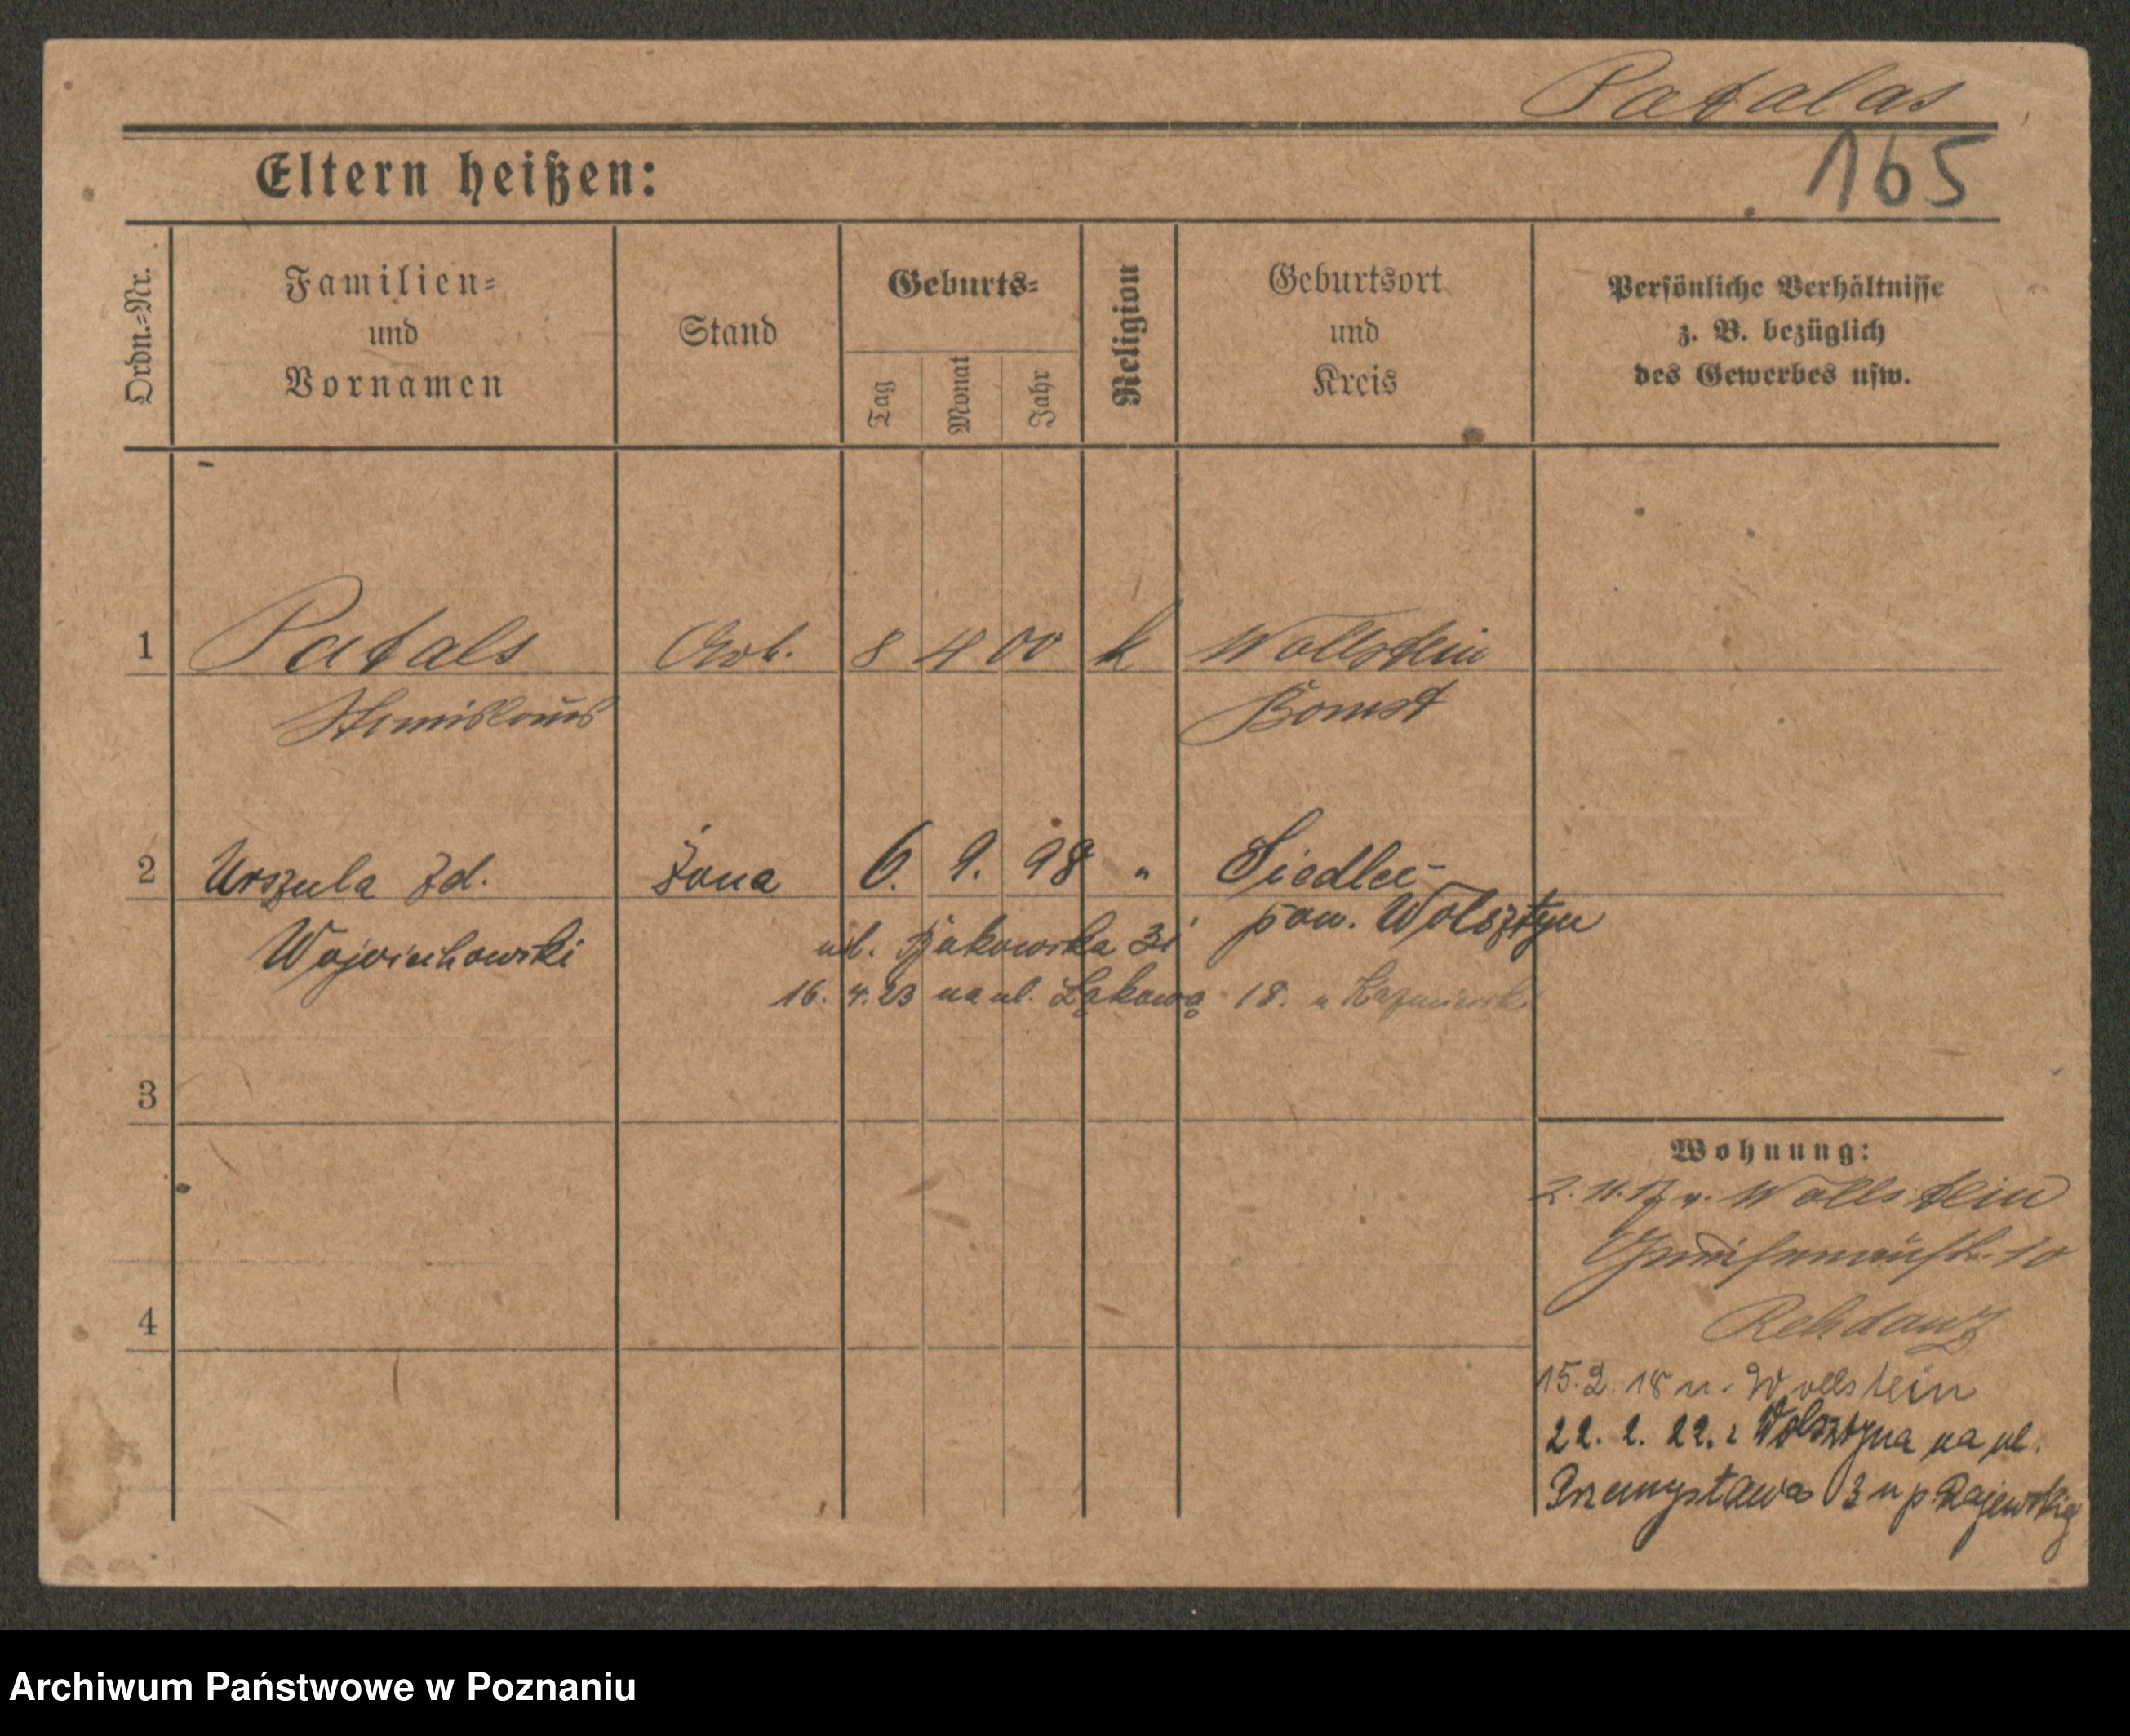 Patalas
165
Eltern heißen:
Ordn.=Nr.
Familien=
und
Vornamen
Stand
Geburts=
Tag
Monat
Jahr
Religion
Geburtsort
und
Kreis
Persönliche Verhältnisse
z. B. bezüglich
des Gewerbes usw.
1 Patals Arb. 8 4 00 k Wollstein
Bomst
2 Urszula Zd. Żona 6. 9. 98 " Siedlec
pow. Wolsztyn
Wojciechowski ul. Bukowska 31
16. 4. 23 na ul. Łąkową 18. u
3
Wohnung:
2. 11. 17 v. Wollstein
10
Rehdanz
4
15. 2. 18 n. Wollstein
22. 2. 22. z Wolsztyna na ul.
Przemysława 3 u p Rajewskiej
Archiwum Państwowe w Poznaniu